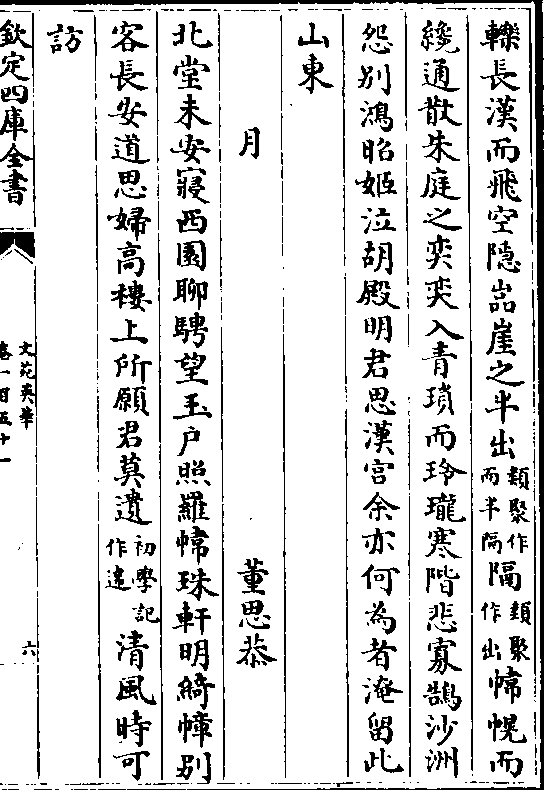 轢長漢而飛空隠嵓崖之半出類聚作而半隔隔類聚作出幃幌而
纔通散朱庭之奕奕入青瑣而玲瓏寒階悲寡鵠沙洲
怨别鴻昭姬泣胡殿明君思漢宮余亦何為者淹留此
山東
月 董思恭
北堂未安寢西園聊騁望玉户照羅幃珠軒明綺幛别
客長安道思婦高樓上所願君莫遺初學記作違清風時可
訪
欽定四庫全書
文苑英華
卷一百五十一
六